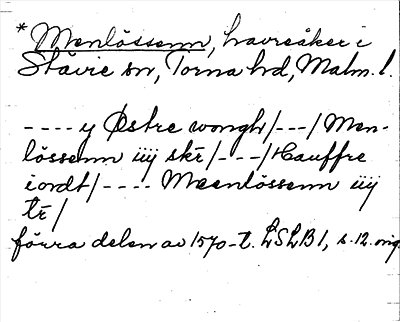 * Menlössenn, havreåker i
Stävie sn, Torna hd, Malm. l.
---- y Østre wongh/---/ Men-
lössenn iiij skr/----/Hauffre
iordt/---- Meenlössenn iiij
tr/
förra delen av 1570-t. LSLB 1, s. 12. orig.